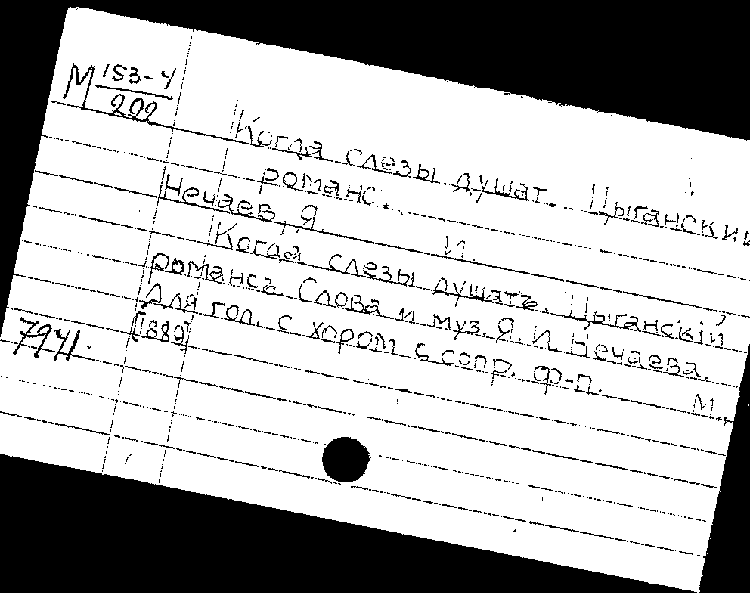 М 153-4
202
Когда слезы душат. Цыганский
романс.
Нечаев, Я. И.
Когда слезы душатъ. Цыганскій
романсъ. Слова и муз. Я. И. Нечаева.
Для гол. с хором с сопр. ф-п. М.,
[1889]
7941.